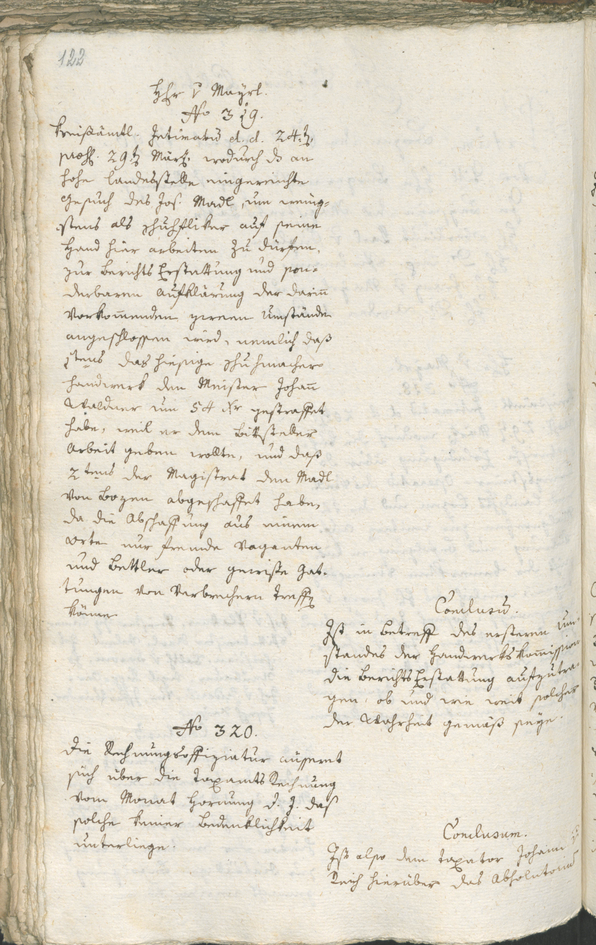 122
Hr. v Mayrl.
No 319.
Kreisämtl. Intimatum d. d. 24t,
präs. 29t März, wodurch das an
hohe Landesstelle eingereichte
Gesuch des Jos. Madl, um wenig-
stens als Schuhfliker auf seine
Hand hier arbeiten zu dürfen,
zur Berichts Erstattung und son-
derbaren Aufklärung der darin
vorkommenden zween Umstände
angeschlossen wird, nemlich daß
1stens das hiesige Schuhmacher
Handwerk den Meister Johann
Waldner um 54 Xr gestraffet
habe, weil er dem Bittsteller
Arbeit geben wollte, und daß
2tens der Magistrat den Madl
von Bozen abgeschaffet habe,
da die Abschaffung aus einem
Orte nur fremde Vaganten
und Bettler oder gewiße Gat-
tungen von Verbrechern treffen
könne.
Conclusum.
Ist in Betreff des ersteren Um-
standes der Handwerkskommission
die Berichts Erstattung aufzutra-
gen, ob und wie weit solcher
der Wahrheit gemäß seye.
No 320.
Die Rechnungsoffiziatur äussert
sich über die Taxamts Rechnung
vom Monat Hornung d. J. daß
solche keiner Bedenklichkeit
unterliege.
Conclusum.
Ist also dem Taxator Johann
hierüber das Absolutorium